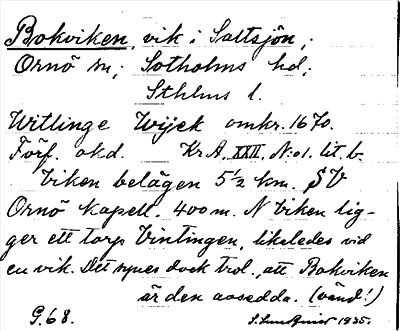 Bokviken, vik i Saltsjön;
Ornö sn; Sotholms hd;
Sthlms l.
Witlinge Wijck omkr. 1670.
Förf. okd. Kr A, XXII, N:o 1. lit. b.
Viken belägen 5½ km. SV
Ornö kapell. 400 m. N Viken lig-
ger ett torp Vintingen, likaledes vid
en vik. Det synes dock trol., att Bokviken
är den avsedda. (vänd!)
968. S. Lundquist 1935.